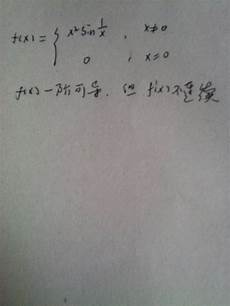 f(x) = { x² sin 1/x , x≠0
0 , x=0
f(x)一阶可导，但 f'(x)不连续